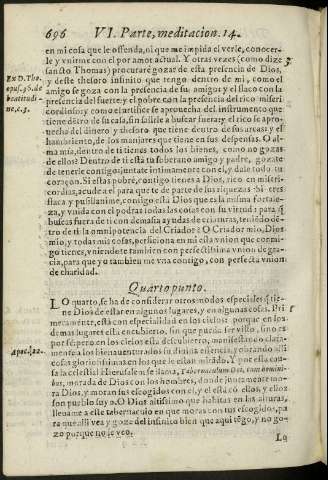 696 VI. Parte, meditacion. 14.
en mi cosa que le offenda, ni que me impida el verle, conocer-
le y vnirme con el por amor actual. Y otras vezes (como dize
sancto Thomas) procurarè gozar de esta presencia de Dios,
y deste thesoro infinito que tengo dentro de mi, como el
amigo se goza con la presencia de su amigo: y el flaco con la
presencia del fuerte: y el pobre con la presencia del rico miseri
cordioso: y como el artifice se aprouecha del instrumento que
tiene dẽtro de su casa, sin salirle a buscar fuera: y el rico se apro-
uecha del dinero y thesoro que tiene dentro de sus arcas: y el
hambriento, de los manjares que tiene en sus despensas. O al-
ma mia, dentro de ti tienes todos los bienes, como no gozas
de ellos? Dentro de ti està tu soberano amigo y padre, gozate
de tenerle contigo, juntate intimamente con el, y dale todo tu
coraçon. Si estas pobre, contigo tienes a Dios, rico en miseri-
cordias, acude a el para que te de parte de sus riquezas. Si eres
flaca y pusillanime, contigo està Dios que es la misma fortale-
za, y vnida con el podras todas las cosas con su virtud: para q̃
buscas fuera de ti con demasia ayudas de criaturas, teniẽdo dẽ-
tro de ti la omnipotencia del Criador? O Criador mio, Dios
mio, y todas mis cosas, perficiona en mi esta vnion que conmi-
go tienes, vniendote tambien con perfectissima vnion de gra-
cia, para que yo tambien me vna contigo, con perfecta vnion
de charidad.
Ex D. Tho.
opus. 36. de
beatitudi-
ne, c. 3.
Quarto punto.
LO quarto, se ha de considerar otros modos especiales q̃ tie-
ne Dios de estar en algunos lugares, y en algunas cosas. Pri
meramente, està con especialidad en los cielos: porque en los
demas lugares està encubierto, sin que pueda ser visto, sino es
por fe: pero en los cielos està descubierto, manifestando clara-
mente a los bienauenturados su diuina essencia, y obrando alli
cosas gloriosissimas en los que le estan mirãdo. Y por esta cau-
sa la celestial Hierusalem se llama, Tabernaculum Dei, cum homini-
bus, morada de Dios con los hombres, donde juntamente mo-
ra Dios, y moran sus escogidos con el, y el està cõ ellos, y ellos
son pueblo suyo. O Dios altissimo que habitas en las alturas,
lleuame a esse tabernaculo en que moras con tus escogidos, pa
ra que alli vea y goze del infinito bien que aqui tẽgo, y no go-
zo porque no le veo.
Apoc. 21.
Lo